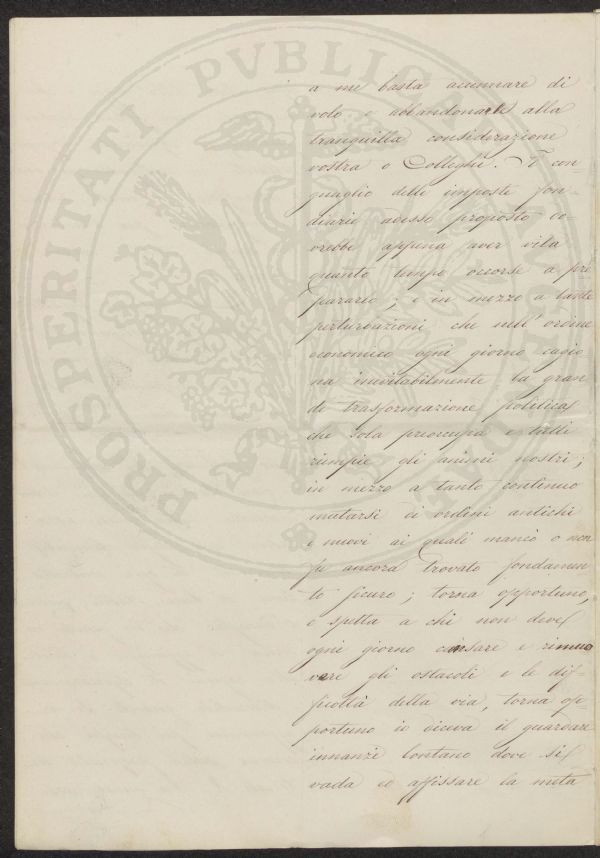 a me basta accennare di
volo e abbandonarle alla
tranquilla considerazione
vostra o Colleghi. Il con-
guaglio delle imposte fon-
diarie adesso proposto do-
vrebbe appena aver vita
quanto tempo occorse a pre
pararlo; e in mezzo a tante
perturbazioni che nell'ordine
economico ogni giorno cagio
na inevitabilmente la gran
de trasformazione politica
che sola preoccupa e tutti
riempie gli animi nostri;
in mezzo a tanto continuo
mutarsi di ordini antichi
e nuovi ai quali mancò o non
fu ancora trovato fondamen-
to sicuro; torna opportuno,
e spetta a chi non deve
ogni giorno cansare e rimuo
vere gli ostacoli e le dif-
ficoltà della via, torna op-
portuno io diceva il guardare
innanzi lontano dove si
vada ed affissare la meta
PROSPERITATI PVBLICAE AVGENDAE